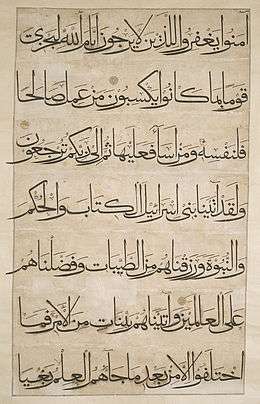 امنوا يغفروا للذين لا يرجون ايام الله ليجزي
قوما بما كانوا يكسبون من عمل صالحا
فلنفسه ومن اسا فعليها ثم الى ربكم ترجعون
ولقد اتينا بنى اسرائيل الكتاب والحكم
والنبوة ورزقناهم من الطيبات وفضلناهم
على العالمين واتيناهم بينات من الامر فما
اختلفوا الا من بعد ما جاهم العلم بغيا